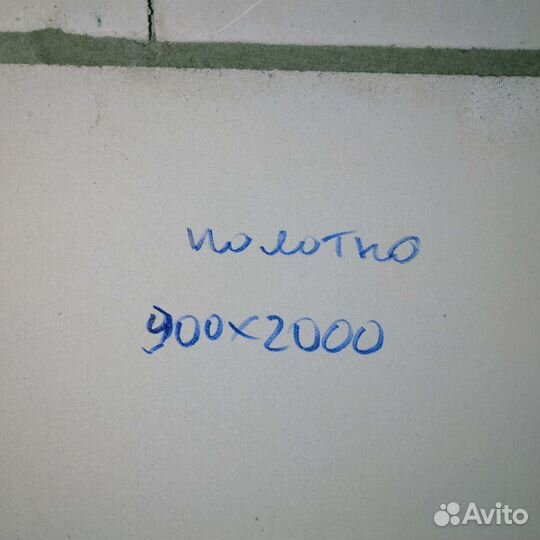 полотно
900х2000
Avito